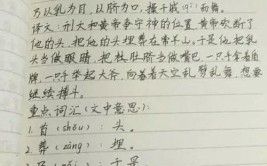 乃以乳为目，以脐为口，操干戚以而舞。
译文：刑天和黄帝争宁神的位置，黄帝砍断了
他的头，把他的头埋葬在常羊山。于是他把乳
头当做眼睛，把肚脐当做嘴巴，一只手拿着盾
牌，一只手举起大斧，向着着天空乱劈乱舞，想要
继续搏斗。
重点词汇（文中意思）：
1. 首（shǒu）：头。
2. 葬（zàng）：埋。